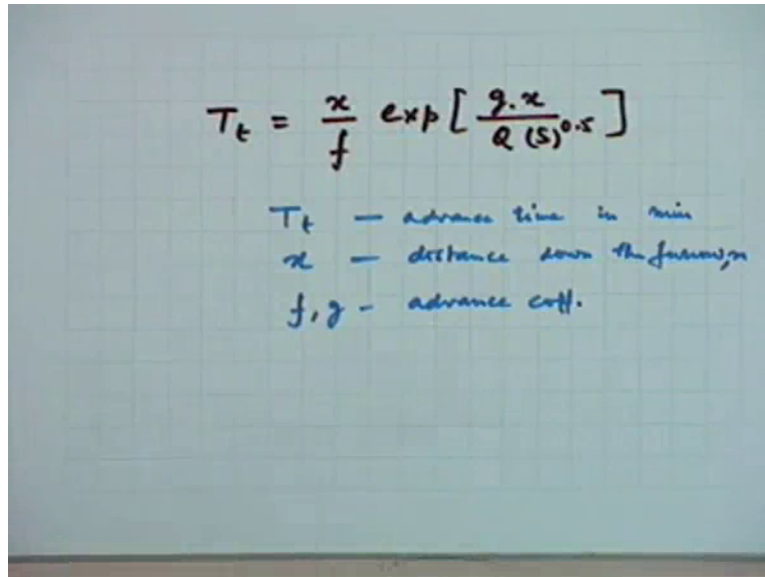 T_t = x/f exp [ g.x / Q (S)^0.5 ]
T_t — advance time in min
x — distance down the furrow, m
f, g - advance coff.